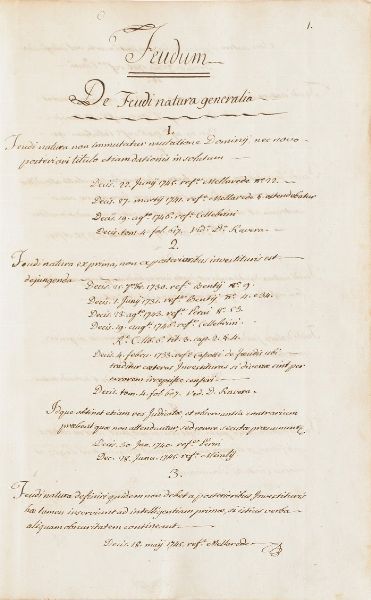 1.
Feudum
De Feudi natura generalia
1.
Feudi natura non immutatur mutatione Dominij nec novo
posteriori titulo etiam dationis in solutum
Decis. 22. Junij 1746. ref.e Mellarede n.o 12.
Decis. 27. martij 1741. ref.e Mellarede § ostendebatur
Decis. 19. aug.i 1746. ref.e
Decis. tom. 4. fol. 617. vid. D. Ravera.
2.
Feudi natura ex prima, non ex posterioribus investituris est
dejungenda
Decis. 1730. ref.e Bentij n.o 9.
Decis. 1. Junij 1731. ref.e Bentij n.o 4. e 34.
Decis. 23. ag.i 1743. ref.e Peris n.o 53.
Decis. 19. aug.i 1746. ref.e
lib. 6. tit. 3. cap. 2. § 4.
Decis. 4. febru. 1733. ref.e de Feudis ubi
traditur cæteras Investituras si diversæ sint per
errorem irrepsisse
Decis. tom. 4. fol. 607. vid. D. Ravera.
Idque obtinet etiam res Judicatæ, et observantia contrarium
præbeat quæ non attenduntur, sed erroneæ secutæ præsumuntur
Decis. 30. Jan. 1740. ref.e Peris
Dec. 18. Janu. 1741. ref.e
3.
Feudi natura definiri quidem non debet a posterioribus Investituris
hæ tamen inserviunt ad intelligentiam primæ, si istius verba
aliquam obscuritatem contineant
Decis. 12. maij 1745. ref.e Mellarede